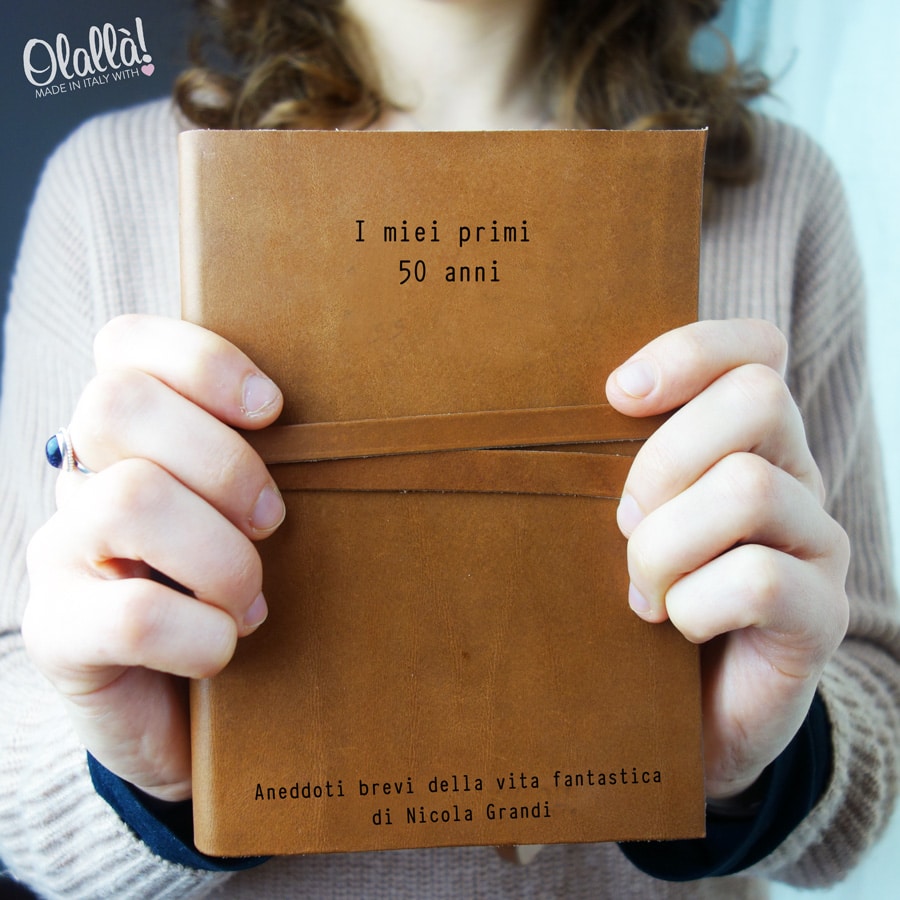 Olallà!
MADE IN ITALY WITH
I miei primi
50 anni
Aneddoti brevi della vita fantastica
di Nicola Grandi